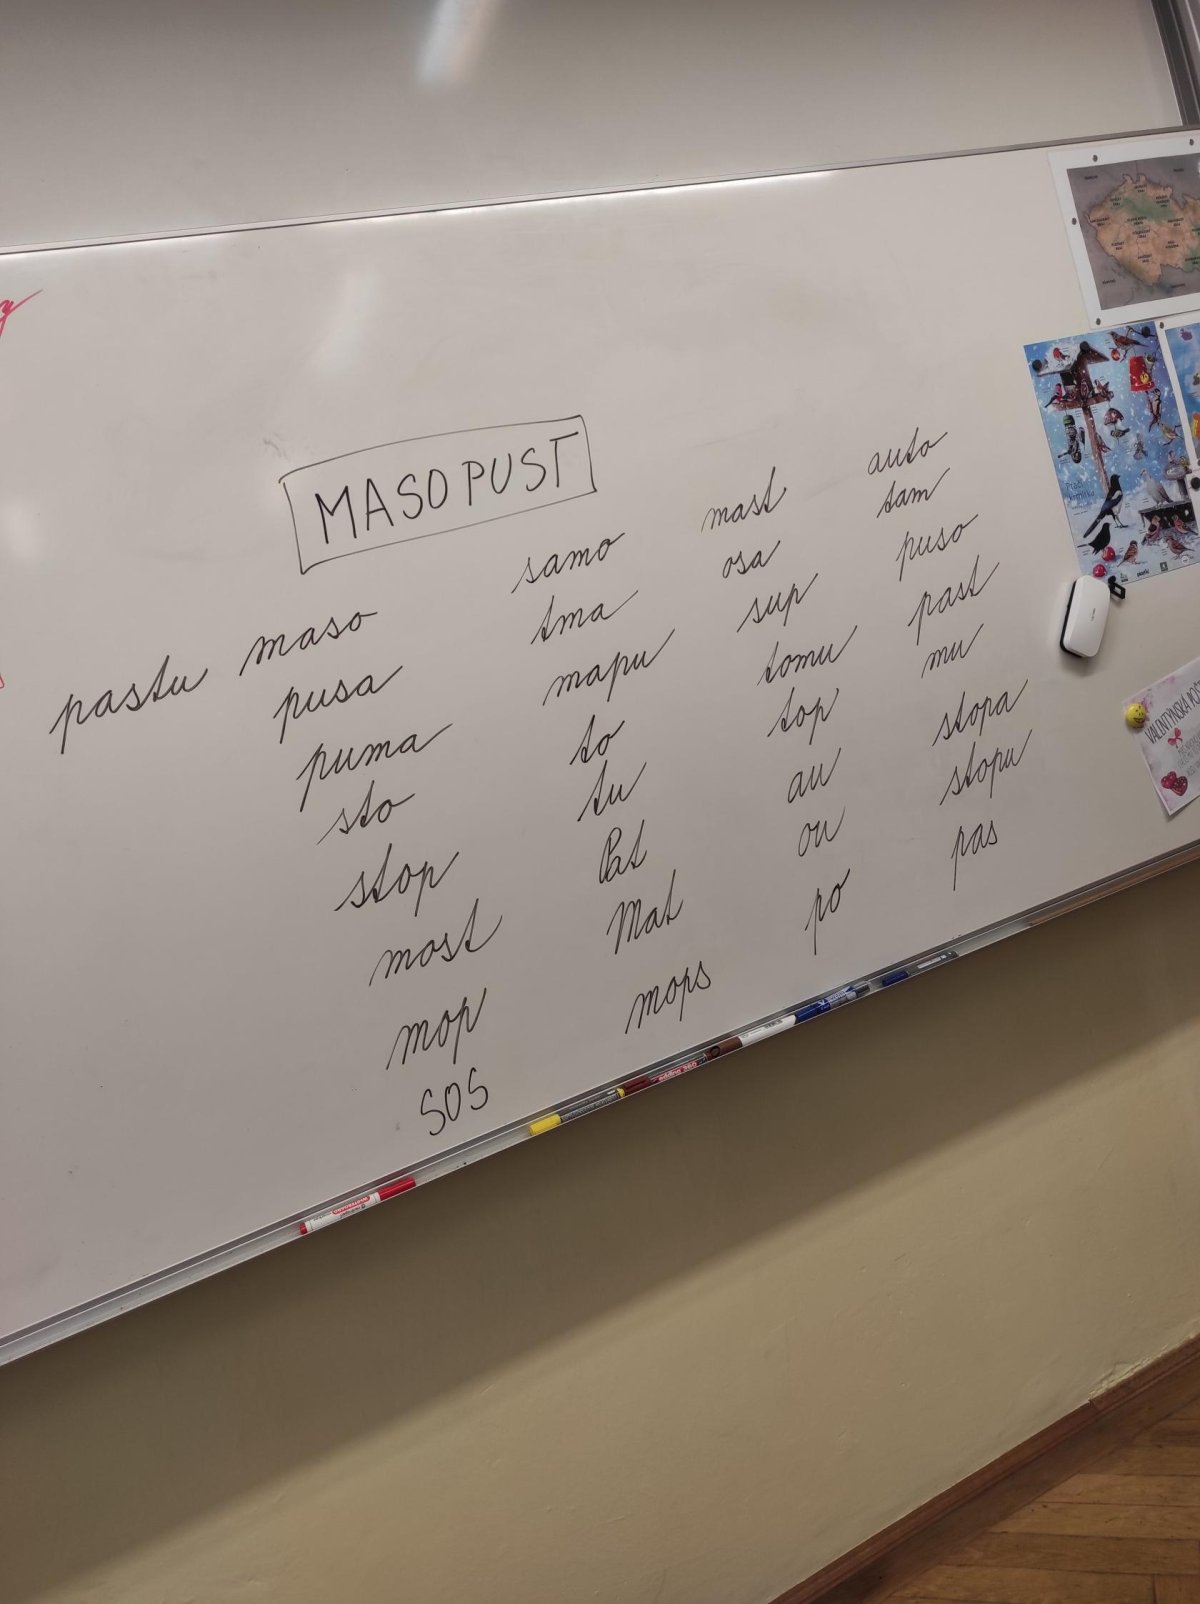 MASOPUST
pastu
maso
pusa
puma
sto
stop
most
mop
SOS
samo
tma
mapu
to
tu
Pat
Mat
mops
mast
osa
sup
tomu
top
au
ou
po
auto
tam
puso
past
mu
stopa
stopu
pas
Ptáci
VALENTÝNSKÁ
edding 360